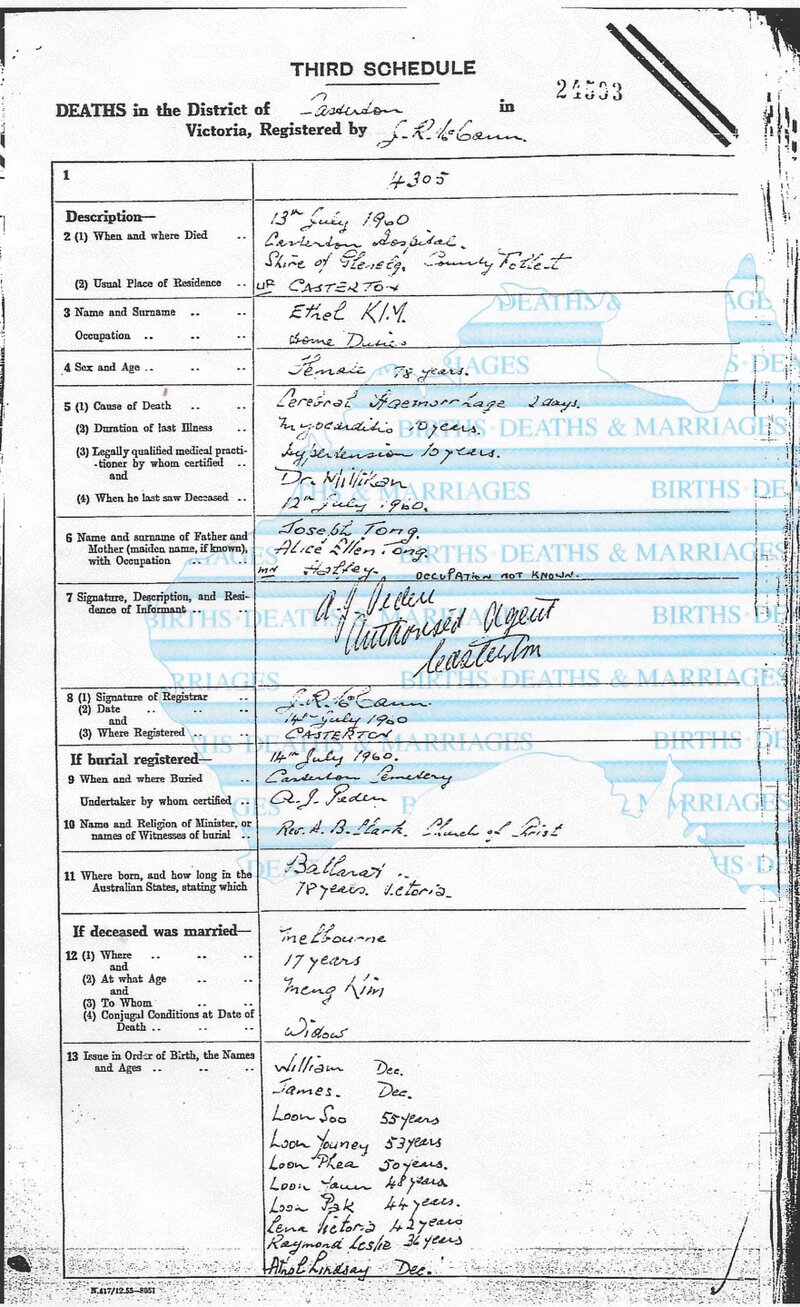 THIRD SCHEDULE
24503
DEATHS in the District of Casterton in
Victoria, Registered by J. R. McCann.
1 4305
Description—
2 (1) When and where Died .. 13th July 1960
Casterton Hospital.
Shire of Glenelg. County Follett
(2) Usual Place of Residence .. UP CASTERTON
3 Name and Surname .. .. Ethel KIM.
Occupation .. .. .. Home Duties
4 Sex and Age .. .. .. Female 78 years.
5 (1) Cause of Death .. .. Cerebral Haemorrhage 2 days.
(2) Duration of last Illness .. Myocarditis 10 years.
(3) Legally qualified medical practi- Hypertension 10 years.
-tioner by whom certified ..
and Dr. Millikan
(4) When he last saw Deceased .. 12th July 1960.
6 Name and surname of Father and Joseph Tong.
Mother (maiden name, if known), Alice Ellen Tong.
with Occupation .. .. MN OCCUPATION NOT KNOWN.
7 Signature, Description, and Resi-
dence of Informant .. .. A. J. Peden
Authorised Agent
Casterton
8 (1) Signature of Registrar .. J. R. McCann.
(2) Date .. .. ..
and 14th July 1960
(3) Where Registered .. .. CASTERTON
If burial registered— 14th July 1960.
9 When and where Buried .. Casterton Cemetery
Undertaker by whom certified .. A. J. Peden
10 Name and Religion of Minister, or
names of Witnesses of burial .. Rev. A. B. Clark. Church of Christ
11 Where born, and how long in the Ballarat ..
Australian States, stating which 78 years. Victoria.
If deceased was married—
12 (1) Where .. .. .. Melbourne
and
(2) At what Age .. .. 17 years
and
(3) To Whom .. .. Meng Kim
(4) Conjugal Conditions at Date of
Death .. .. .. Widow
13 Issue in Order of Birth, the Names William Dec.
and Ages .. .. ..
James. Dec.
Loon Soo 55 years
Loon Youney 53 years
Loon Phea 50 years.
Loon Yaun 48 years
Loon Pak 44 years.
Lena Victoria 42 years
Raymond Leslie 36 years
Athol Lindsay Dec.
N.417/12.55—8951
DEATHS & AGE
RIAGES S · DEA
BIRTHS · DEATHS & MARRIAGES
THS & MARRIAGES BIRTHS · DEA
AGES BIRTHS · DEATHS & MARRIAGES
BIRTHS · DEATHS & MARRIAGES BIRTHS · D
RRIAGES BIRTHS · DEATHS & MARRIAGES
HS · DEATHS & MARRIAGES BIRTHS · D
GES B MARRIAGES
DEA HS · D